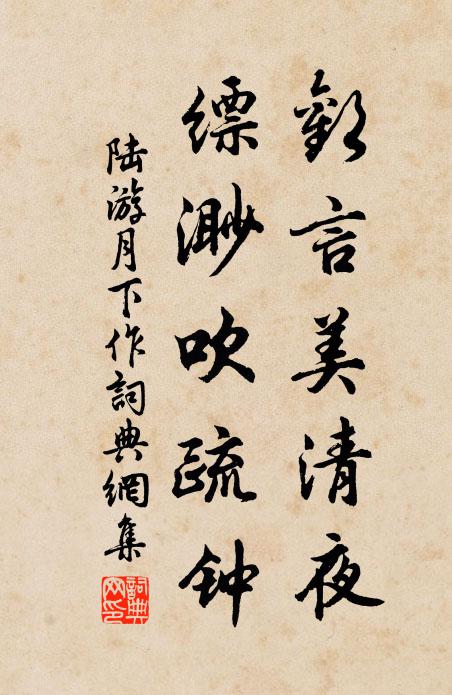 歡言美清夜
缥渺吹疏钟
陸游月下作詞典網集
詞典网印